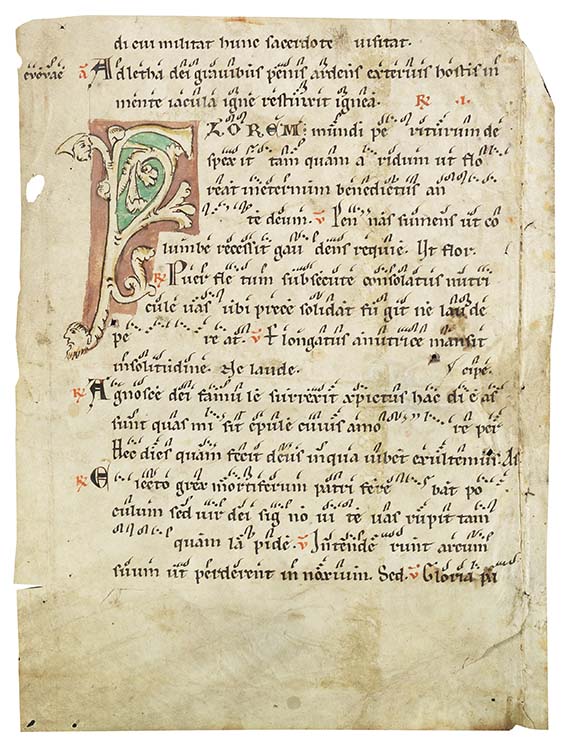 di cui militat hunc sacerdote visitat.
evovae a Ad letha dei gravibus penis ardens exterius hostis in
mente iacula igne restinxit ignea. R .I.
FLOREM mundi pe riturum de
spex it tam quam a ridum ut flo
reat ineternum benedictus an
te deum. V Pennas sumens ut co
lumbe recessit gau dens requie. Ut flor.
R Puer fle tum subsecute consolatus nutri
cule vas ubi prece solidat fu git ne laude
pe re at. V Elongatus a nutrice mansit
in solitudine. Ne laude. cipe.
R Agnosce dei famu le surrexit xpictus hac di e as
sunt quas mi sit epule cuius amo re per
Hec dies quam fecit deus in qua iubet exultemur. As
R E iecto grex mortiferum patri fere bat po
culum sed vir dei sig no vi te vas rupit tam
quam la pide. V Intende runt arcum
suum ut perderent in noxium. Sed. V Gloria pa